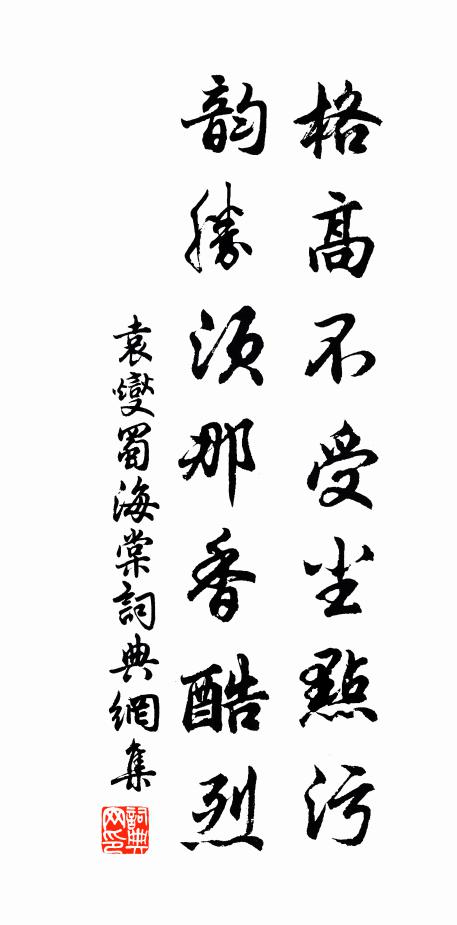 格高不受尘點污
韵勝須那香酷烈
袁燮蜀海棠詞典網集
詞典
网印